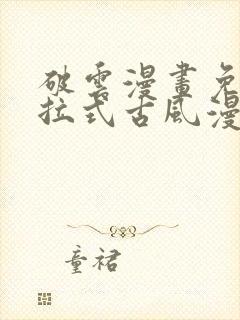 破雲漫畫免
拉式古風漫
童裙